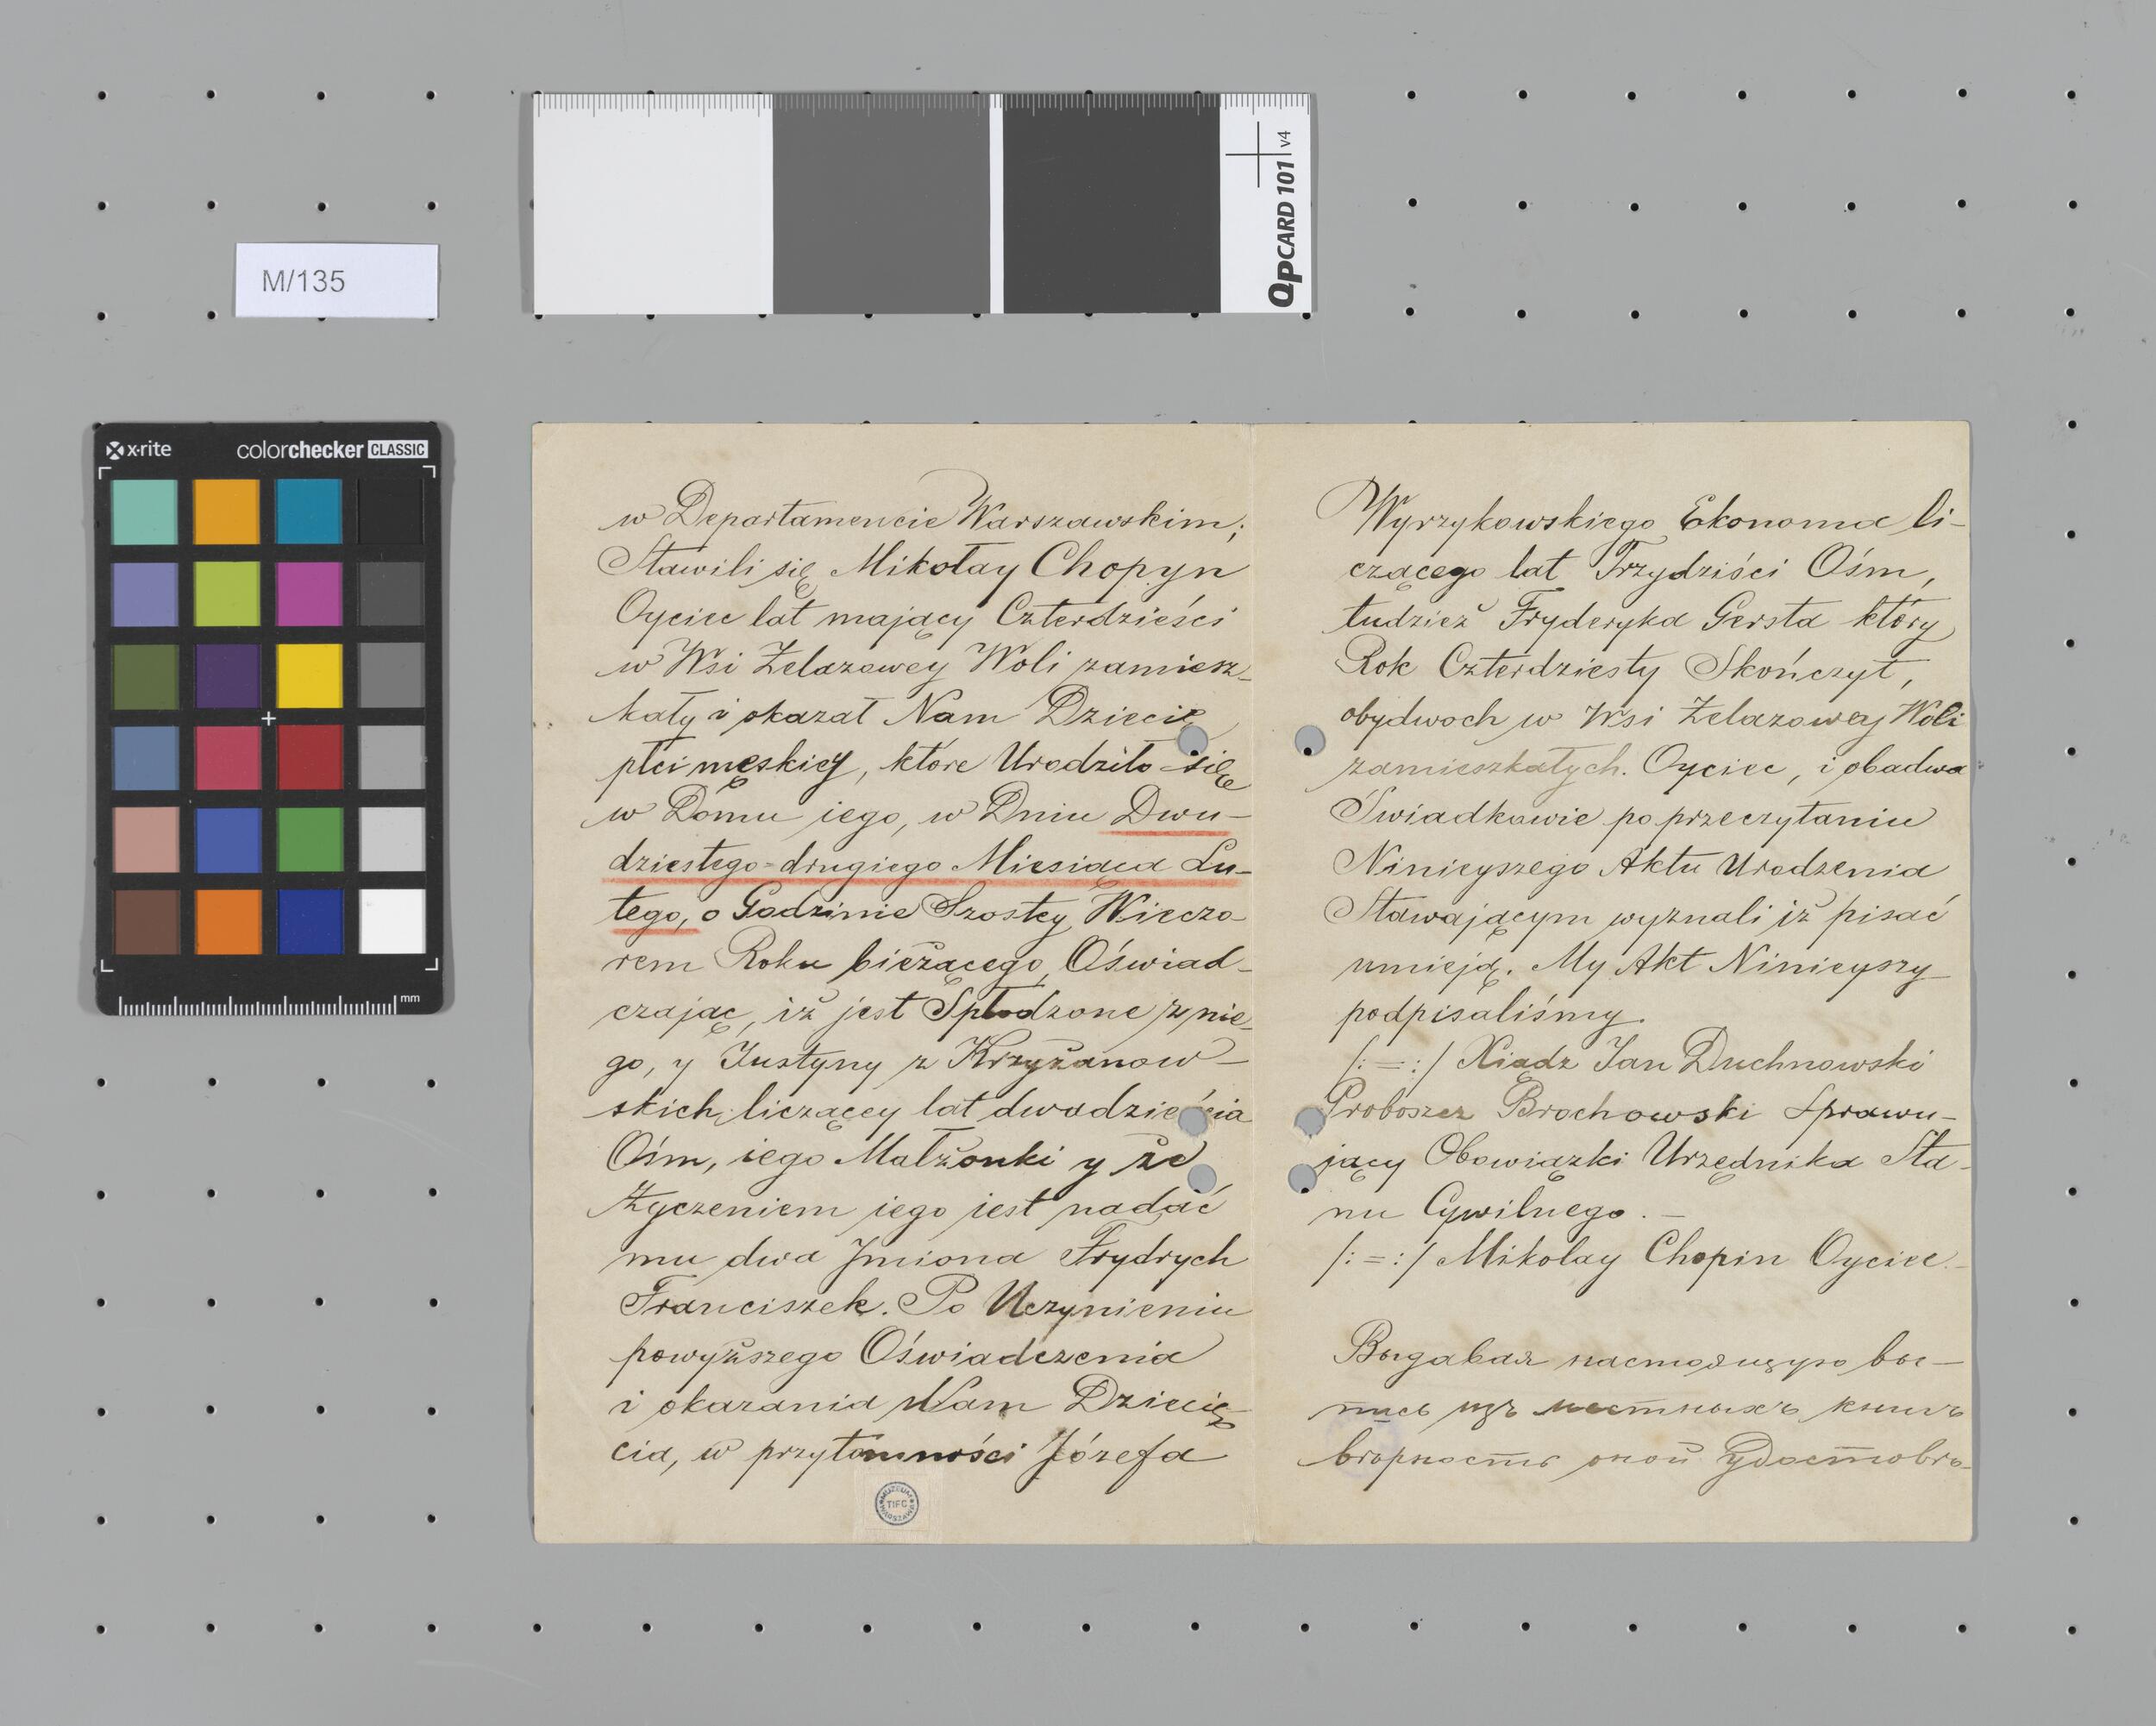 M/135
QPCARD 101 v4
x-rite colorchecker CLASSIC
mm
w Departamencie Warszawskim;
Stawili się Mikołay Chopyn
Oyciec lat mający Czterdzieści
w Wsi Żelazowey Woli zamiesz-
kały i okazał Nam Dziecię
płci męskiey, które Urodziło się
w Domu iego, w Dniu Dwu-
dziestego-drugiego Miesiąca Lu-
tego, o Godzinie Szostey Wieczo-
rem Roku bieżącego, Oświad-
czając, iż jest Spłodzone z nie-
go, y Justyny z Krzyżanow-
skich, liczącey lat dwadzieścia
Ośm, iego Małżonki y że
Życzeniem iego jest nadać
mu dwa Jmiona Frydrych
Franciszek. Po Uczynieniu
powyższego Oświadczenia
i okazania Nam Dziecię-
cia, w przytomności Józefa
MUZEUM TIFC WARSZAWA
Wyrzykowskiego Ekonoma li-
czącego lat Trzydziści Ośm,
tudzież Fryderyka Gersta który
Rok Czterdziesty Skończył,
obydwoch w Wsi Żelazowey Woli
zamieszkałych. Oyciec, i obadwa
Świadkowie po przeczytaniu
Ninieyszego Aktu Urodzenia
Stawającym wyznali iż pisać
umieją. My Akt Ninieyszy
podpisaliśmy.
/:=:/ Xiądz Jan Duchnowski
Proboszcz Brochowski Sprawu-
jący Obowiązki Urzędnika Sta-
nu Cywilnego. -
/:=:/ Mikolay Chopin Oyciec.
Выдавая настоящую вы-
пись изъ местныхъ книгъ
вѣрность оной удостовѣ-